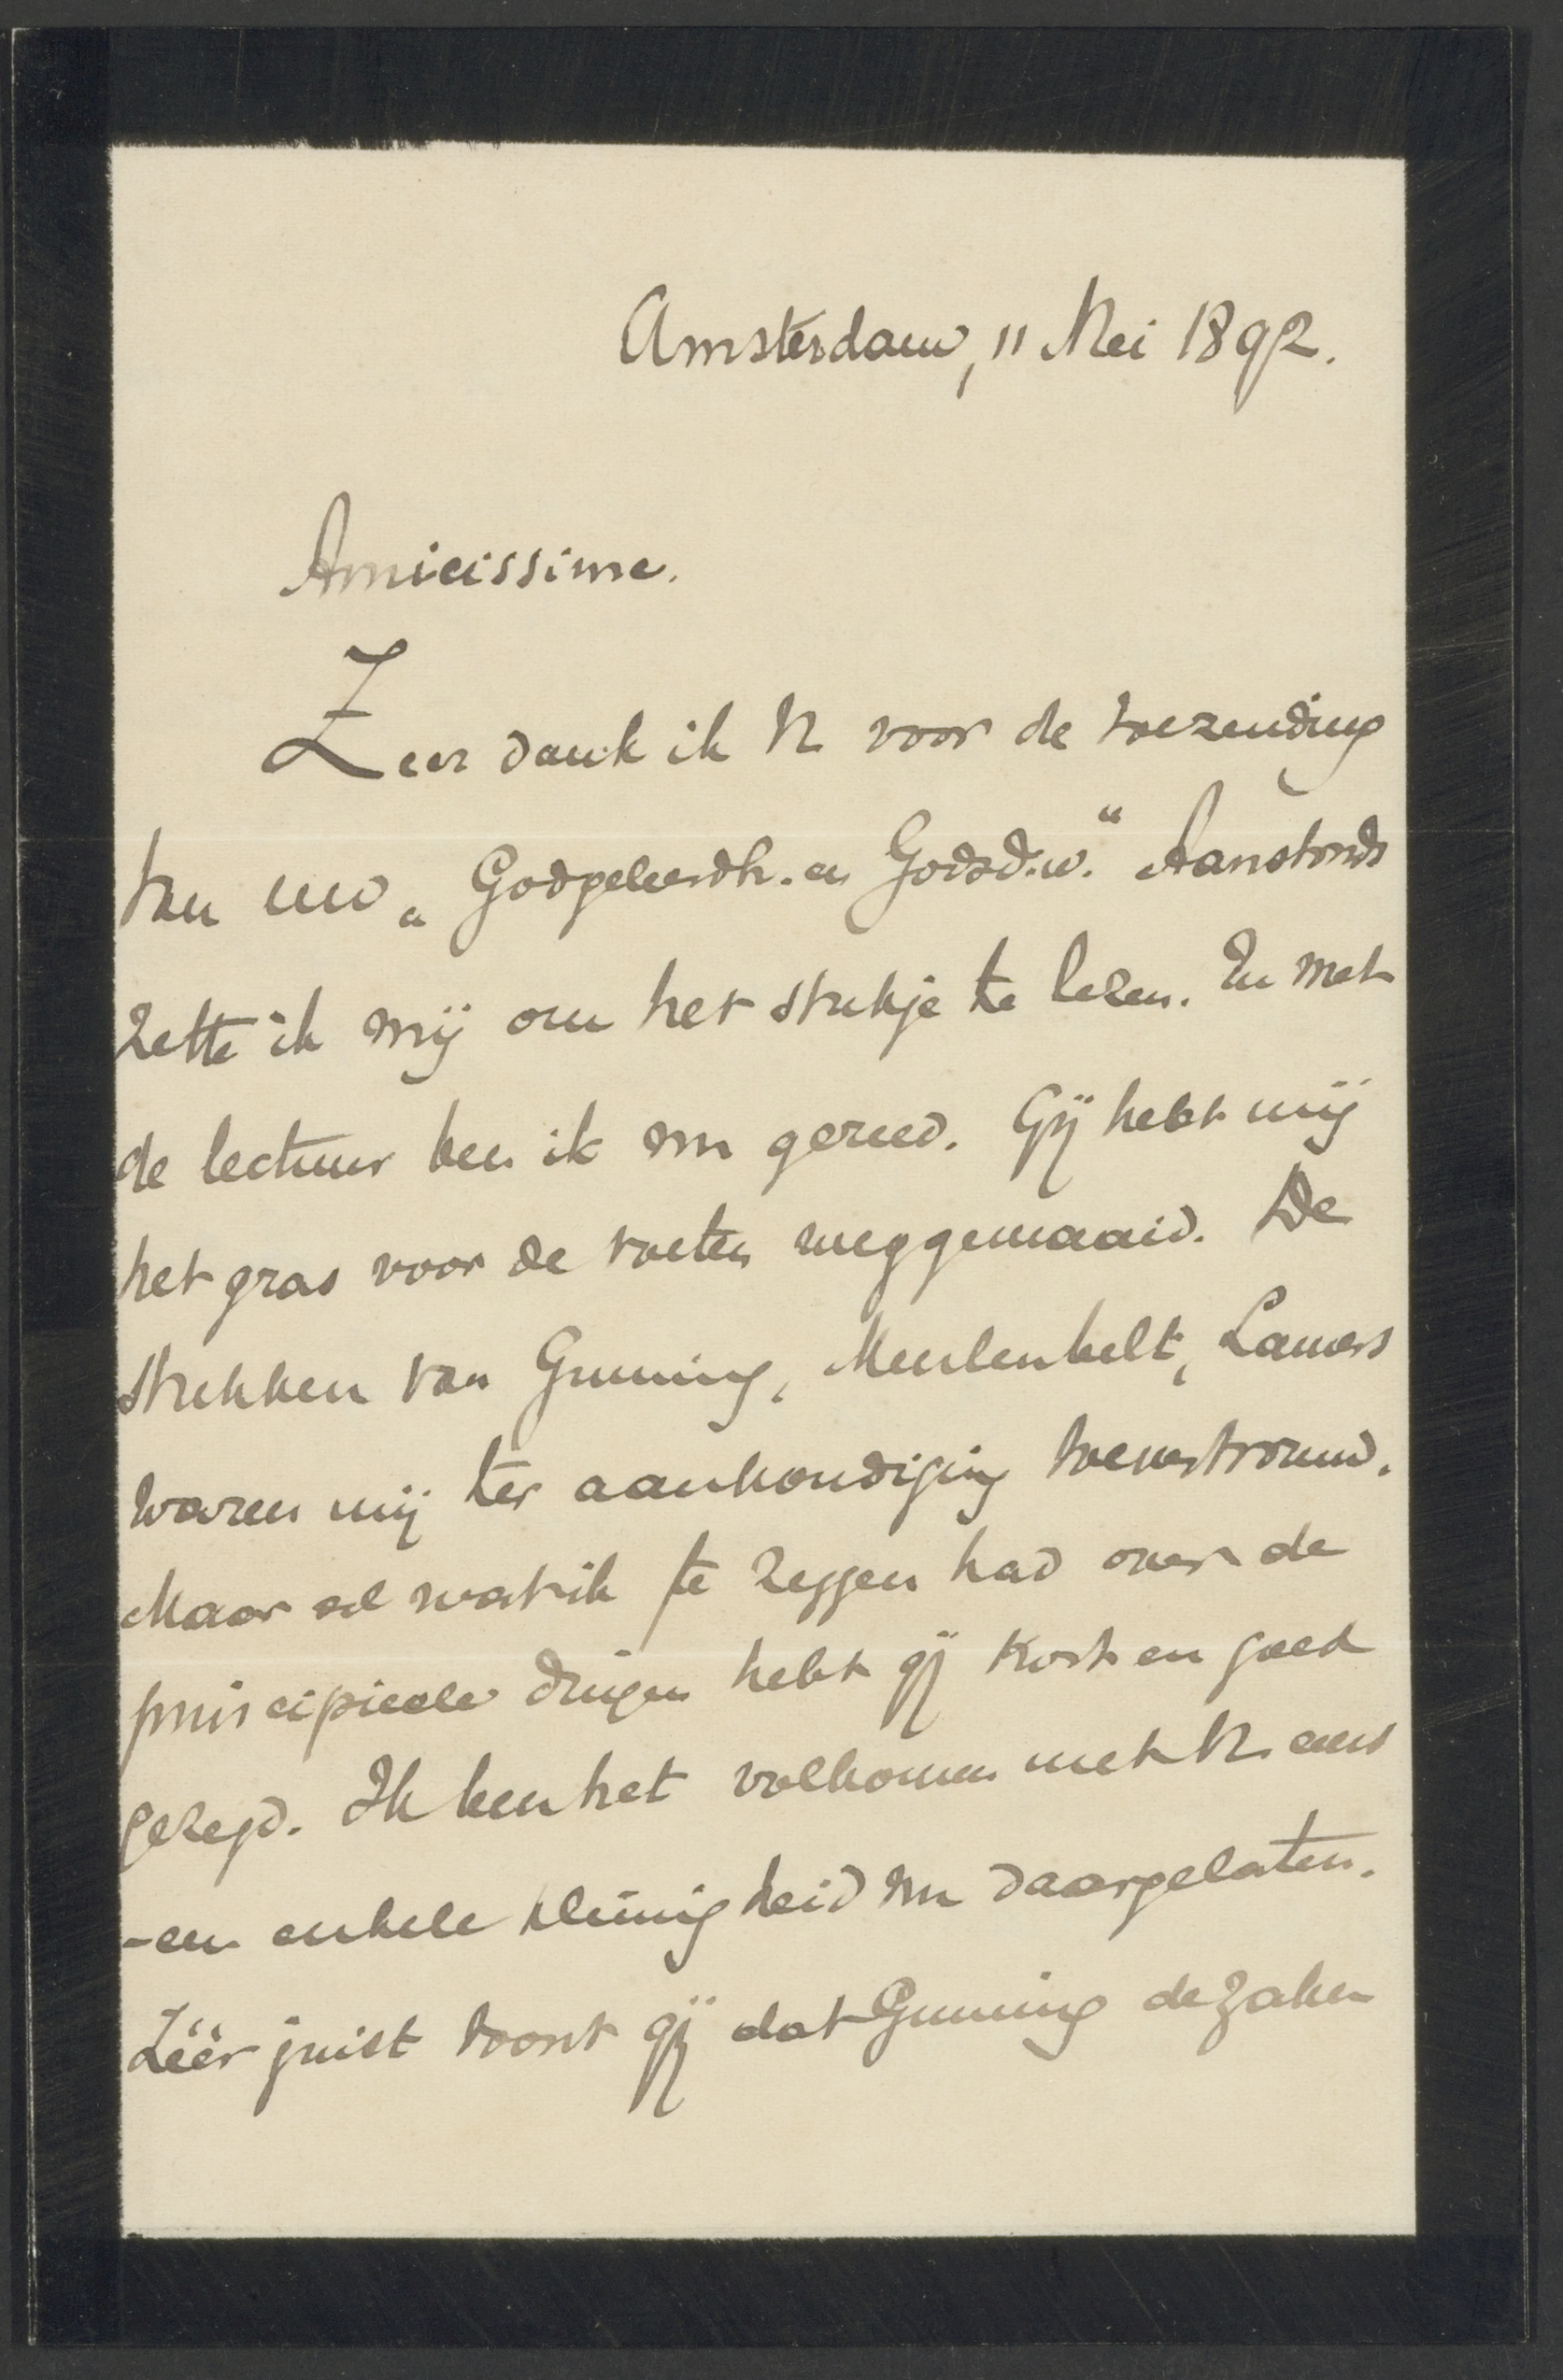 Amsterdam, 11 Mei 1892.
Amicissime.
Zeer dank ik U voor de toezending
van uw „Godgeleerdh. en Godsd.w.“ Aanstonds
zette ik mij om het stukje te lezen. En met
de lectuur ben ik nu gereed. Gij hebt mij
het gras voor de voeten weggemaaid. De
stukken van Gunning, Meulenbelt, Lamers
waren mij ter aankondiging toevertrouwd.
Maar al wat ik te zeggen had over de
principieele dingen hebt gij kort en goed
gezegd. Ik ben het volkomen met U eens
-een enkele kleinigheid nu daargelaten.
Zéér juist toont gij dat Gunning de zaken